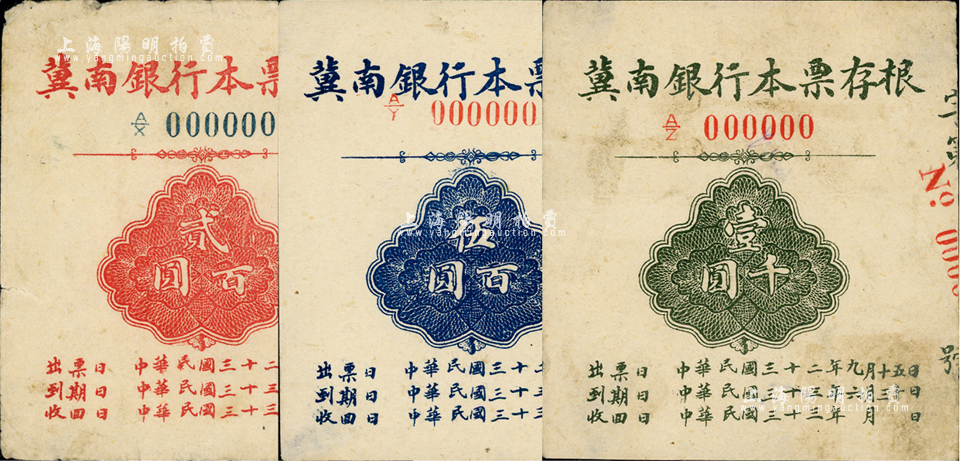 上海陽明拍賣
www.yangmingauction.com
冀南銀行本票
A/X 000000
貳
百
圓
出票日 中華民國三十二
到期日 中華民國三十三
收回日 中華民國三十
冀南銀行本票
A/Y 000000
上海陽明拍賣
www.yangmingauction.com
伍
百
圓
出票日 中華民國三十二
到期日 中華民國三十三
收回日 中華民國三十
冀南銀行本票存根
A/Z 000000
壹
千
圓
出票日 中華民國三十二年九月十五日
到期日 中華民國三十三年六月三十日
收回日 中華民國三十 年 月 日
字第
No 0000
號
上海陽明拍賣
www.yangmingauction.com